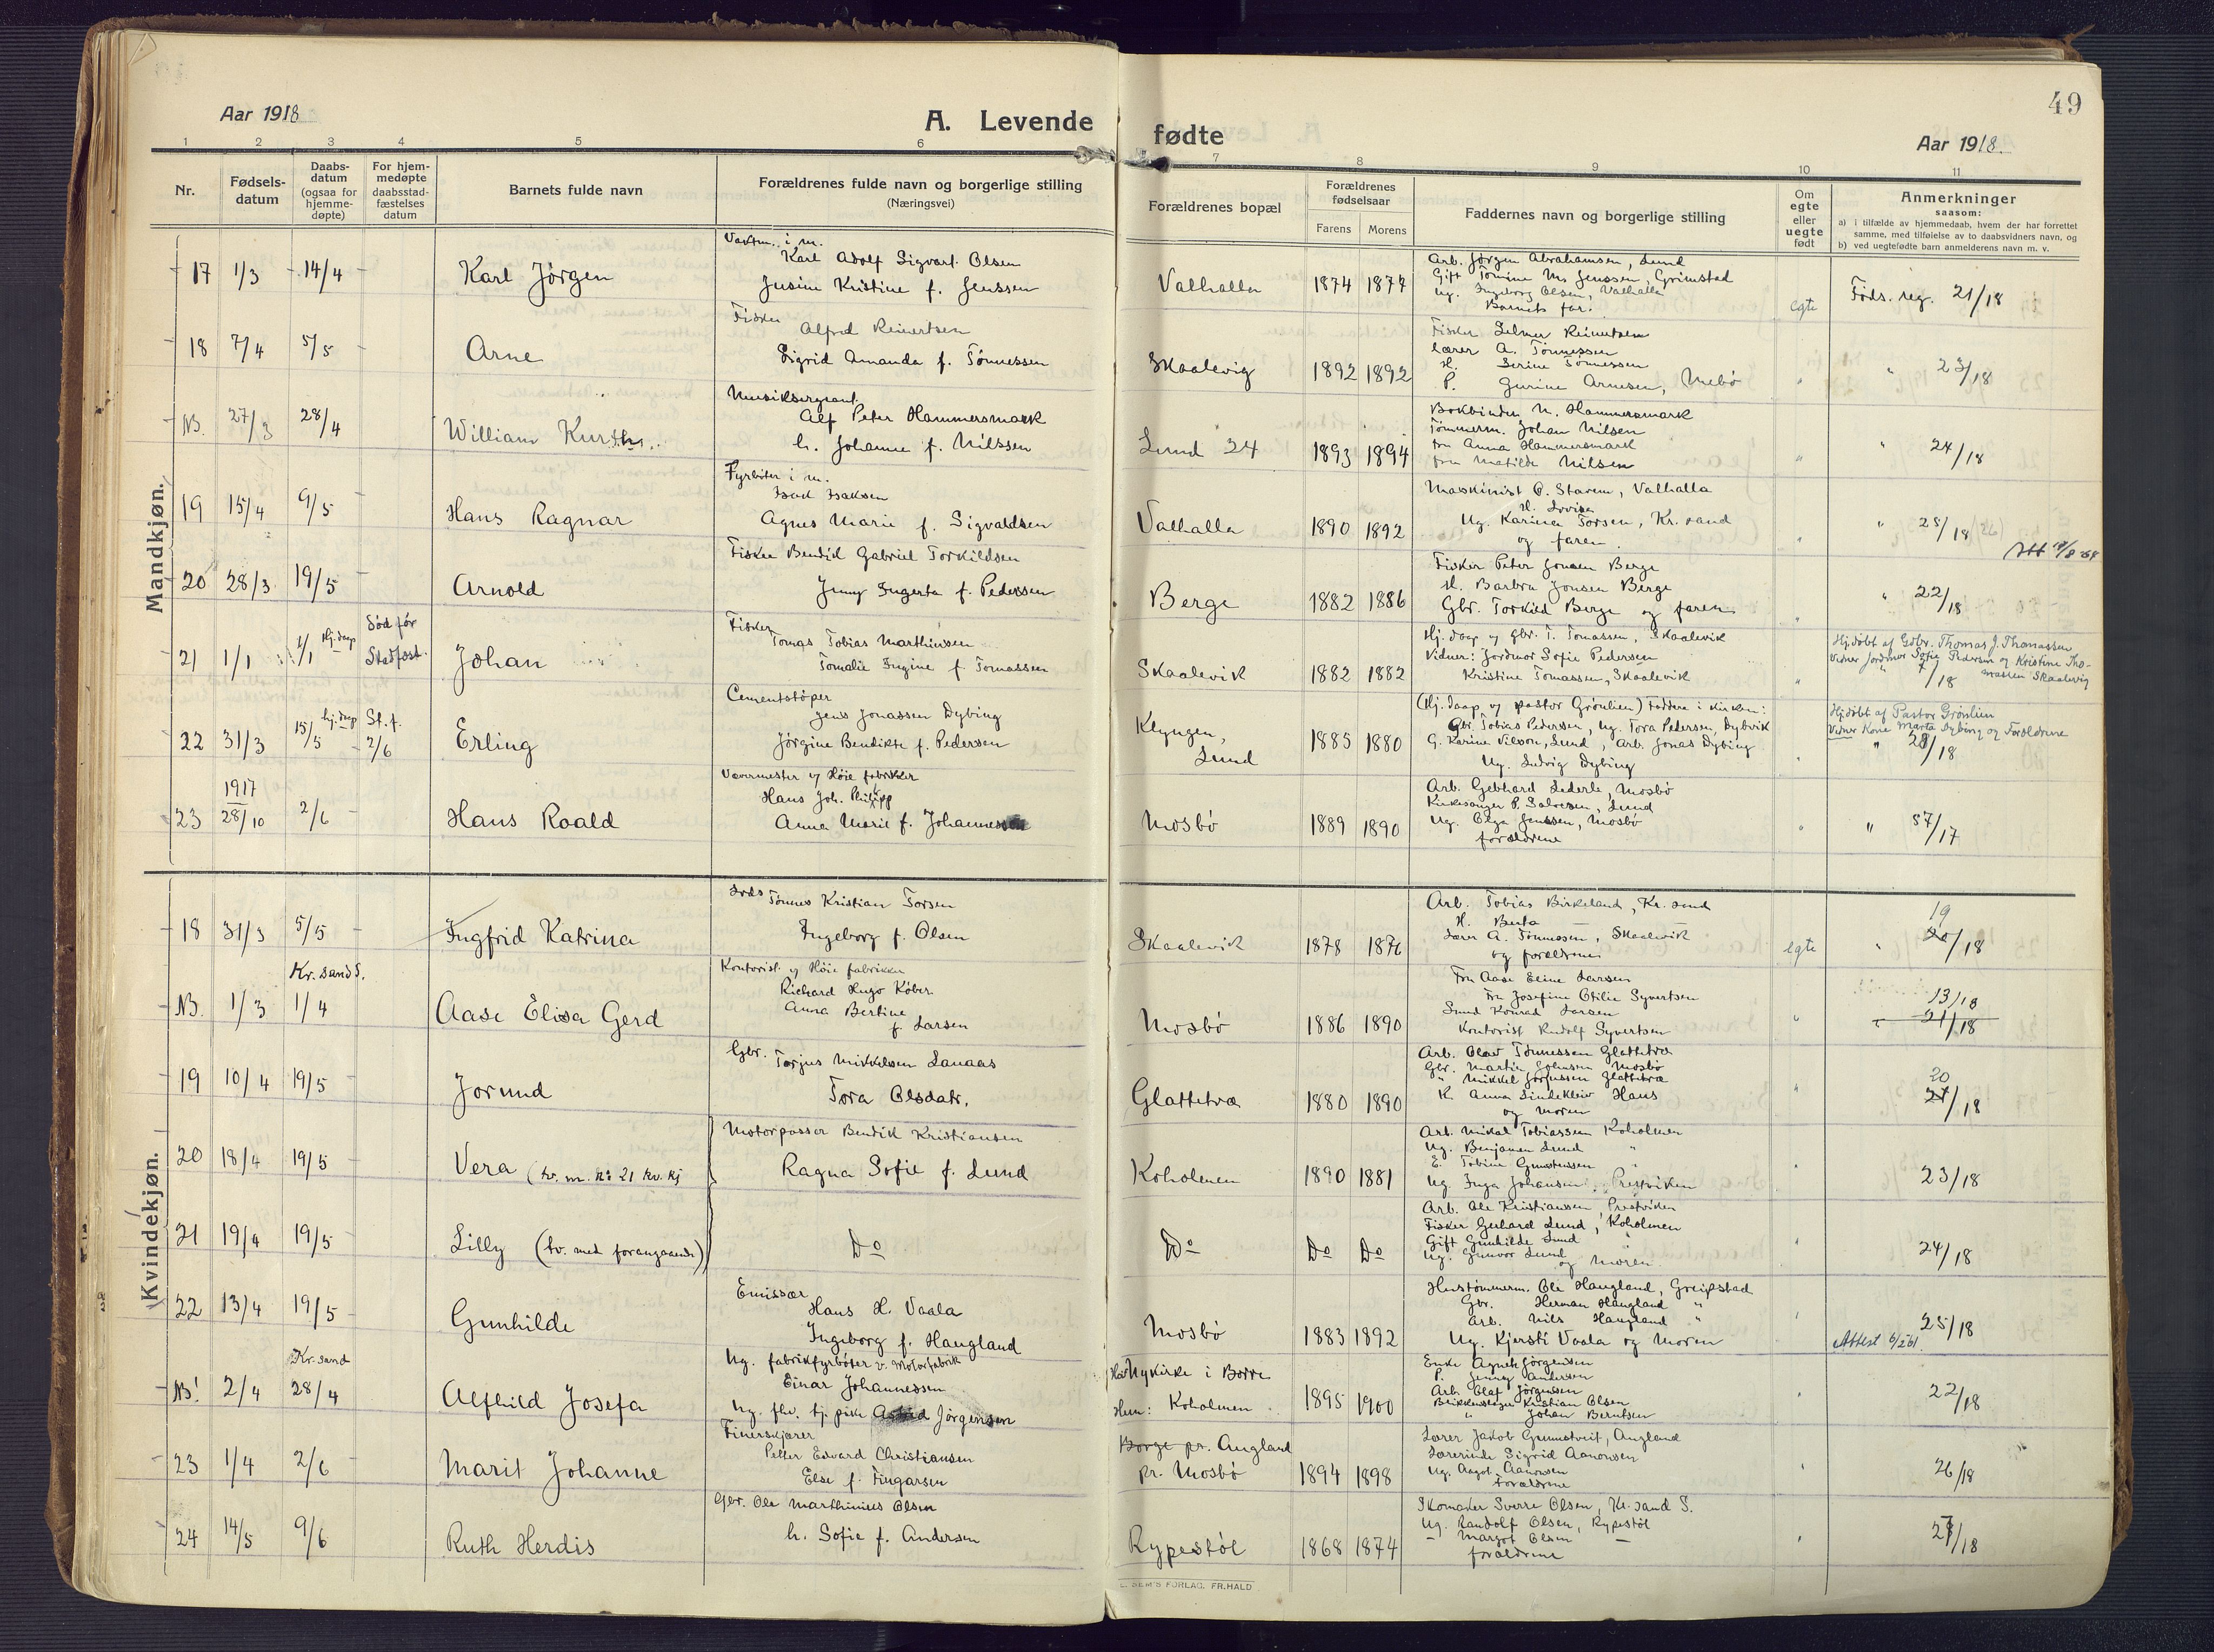 49
Aar 1918
A. Levende
fødte
Aar 1918.
1 2 3 4 5 6 7 8 9 10 11
Nr.
Fødsels-
datum
Daabs-
datum
(ogsaa for
hjemme-
døpte)
For hjem-
medøpte
daabsstad-
fæstelses
datum
Barnets fulde navn
Forældrenes fulde navn og borgerlige stilling
(Næringsvei)
Forældrenes bopæl
Forældrenes
fødselsaar
Farens Morens
Faddernes navn og borgerlige stilling
Om
egte
eller
uegte
født
Anmerkninger
saasom:
a) i tilfælde av hjemmedaab, hvem der har forrettet
samme, med tilføielse av to daabsvidners navn, og
b) ved uegtefødte barn anmelderens navn m. v.
Mandkjøn.
17 1/3 14/4 Karl Jörgen
Karl Adolf Sigvart Olsen
Jusine Kristine f. Jenssen
Valhalla 1874 1874
Arb. Jörgen Abrahamsen, Lund
Gift Tomine M. Jenssen, Grimstad
Ug. Ingeborg Olsen, Valhalla
Barnets far.
egte
Föds. reg. 21/18
18 7/4 5/5 Arne
Fisker
Alfred Reinertsen
Sigrid Amanda f. Tönnessen
Skaalevig 1892 1892
Fisker Selmer Reinertsen
Lærer A. Tönnessen
H. Serine Tönnessen
P. Gurine Arnesen, Mebö
" 23/18
N3. 27/3 28/4 William
Musiksergeant
Alf Peter Hammersmark
h. Johanne f. Nilssen
Lund 24 1893 1894
Bokbinder N. Hammersmark
Tömmerm. Johan Nilsen
Fru Anna Hammersmark
Fru Matilde Nilsen
" 24/18
19 15/4 9/5 Hans Ragnar
Fyrböter i m.
Isak Isaksen
Agnes Marie f. Sigvaldsen
Valhalla 1890 1892
Maskinist O. Starem, Valhalla
H. Lovise
Ug. Karinea Torsen, Kr. sand
og faren.
" 25/18 (26)
20 28/3 19/5 Arnold
Fisker Bendik Gabriel Torkildsen
Jenny Ingerta f. Pedersen
Berge 1882 1886
Fisker Peter Jonsen Berge
H. Barbra Jonsen Berge
Gbr. Torkild Berge og faren
" 22/18
21 1/1 1/1 Hj. daap Död för
Stadfæst.
Johan
Fisker
Tomas Tobias Marthinsen
Tomalie Ingine f. Tomassen
Skaalevik 1882 1882
Hj. daap v/ gbr. T. Tomassen, Skaalevik
Vidner: Jordmor Sofie Pedersen
Kristine Tomassen, Skaalevik
Hjdöbt af Gdbr. Thomas J. Thomassen
Vidner Jordmor Sofie Pedersen og Kristine Tho-
massen Skaalevig
" 7/18
22 31/3 15/5 hj. daap St. f.
2/6
Erling
Cementstöper
Jens Jonassen Dybing
Jörgine Bendikte f. Pedersen
Klyngen,
Lund
1885 1880
(Hj. daap v/ pastor Grönlien) Faddere i kirken:
Gbr. Tobias Pedersen, Ug. Tora Pedersen, Dybvik
G. Karine Nilson, Lund, Arb. Jonas Dybing
Ug. Ludvig Dybing
Hjdöbt af Pastor Grönlien
Vidner Kone Marta Dybing og Forældrene
" 28/18
23 1917
28/10 2/6 Hans Roald
Vævermester v/ Höie fabrikker
Hans Joh. Philipp
Anna Marie f. Johannessen
Mosbö 1889 1890
Arb. Gebhard Lederle, Mosbö
Kirkesanger P. Salvesen, Lund
Ug. Olga Jenssen, Mosbö
forældrene
" 57/17
Kvindekjøn.
18 31/3 5/5 Ingfrid Katrina
Tönnes Kristian Torsen
Ingeborg f. Olsen
Skaalevik 1878 1876
Arb. Tobias Birkeland, Kr. sand
H. Berta —
Lærer A. Tönnessen, Skaalevik
og forældrene
egte
" 19
20/18
N3. 1/3 Kr. sand S.
1/4 Aase Elisa Gerd
Kontorist v/ Höie fabrikker
Richard Hugo Köber
Anna Bertine
f Larsen
Mosbö 1886 1890
Fru Aase Eline Larsen
Fru Josefine Otilie Syvertsen
Konrad Larsen
Kontorist Rudolf Syvertsen
" 13/18
21/18
19 10/4 19/5 Jorund
Gbr. Torjus Mikkelsen Lanaas
Tora Olsdatr.
Glattetræ 1880 1890
Arb. Olav Tönnessen Glattetræ
Gbr. Martin Johnsen Mosbö
" Mikkel Jörgussen Glattetræ
K. Anna Lindekleiv Haus
og moren
" 20
21/18
20 18/4 19/5 Vera (tv. m. No 21 kv. kj
Motorpasser Bendik Kristiansen
Ragna Sofie f. Lund
Koholmen 1890 1881
Arb. Mikal Tobiassen Koholmen
Ug. Benjamin Lund "
E. Tobine Gunstensen "
Ug. Inga Johansen, Prestviken
23/18
21 19/4 19/5 Lilly (tv. med foregaaende)
Do
Do Do Do
Arb. Ole Kristiansen, Prestviken
Fisker Gerhard Lund, Koholmen
Gift Gunhilde Lund "
Ug. Gunvor Lund
og moren
24/18
22 13/4 19/5 Gunhilde
Emissær
Hans H. Vaala
Ingeborg f. Haugland
Mosbö 1883 1892
Hustömmerm. Ole Haugland, Greipstad
Gbr. Herman Haugland "
Arb. Nils Haugland "
Ug. Kjersti Vaala og moren
25/18
N3! 2/4 Kr. sand
28/4 Alfhild Josefa
Ug. fabrikfyrböter v. Motorfabrik
Einar Johannessen
Ug. fhv. tj. pike Astrid Jörgensen
Nykirke i Borre
Hun: Koholmen
1895 1900
Enke Agnete Jörgensen
P. Jenny Andersen
Arb. Olaf Jörgensen
Kristian Olsen
" Johan Berntsen
22/18
23 1/4 2/6 Marit Johanne
Finerskjærer
Petter Edvard Christiansen
Else f. Fingarsen
Borge pr. Augland
pr. Mosbö
1894 1898
Lærer Jakob Gunnstveit, Augland
Lærerinde Sigrid Aanonsen
Ug. Aagot Aanonsen
Forældrene
26/18
24 14/5 9/6 Ruth Herdis
Gbr. Ole Marthinius Olsen
h. Sofie f. Andersen
Rypestöl 1868 1874
Skomaker Sverre Olsen, Kr. sand S.
Ug. Randolf Olsen, Rypestöl
— Margot Olsen —
forældrene
27/18
SEM'S FORLAG, FR.HALD